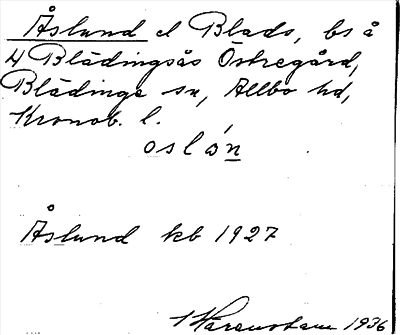 Åslund el Blads, bs å
4 Blädingsås Östregård,
Blädinge sn, Allbo hd,
Kronob. l.
oslón
Åslund kb 1927
1936